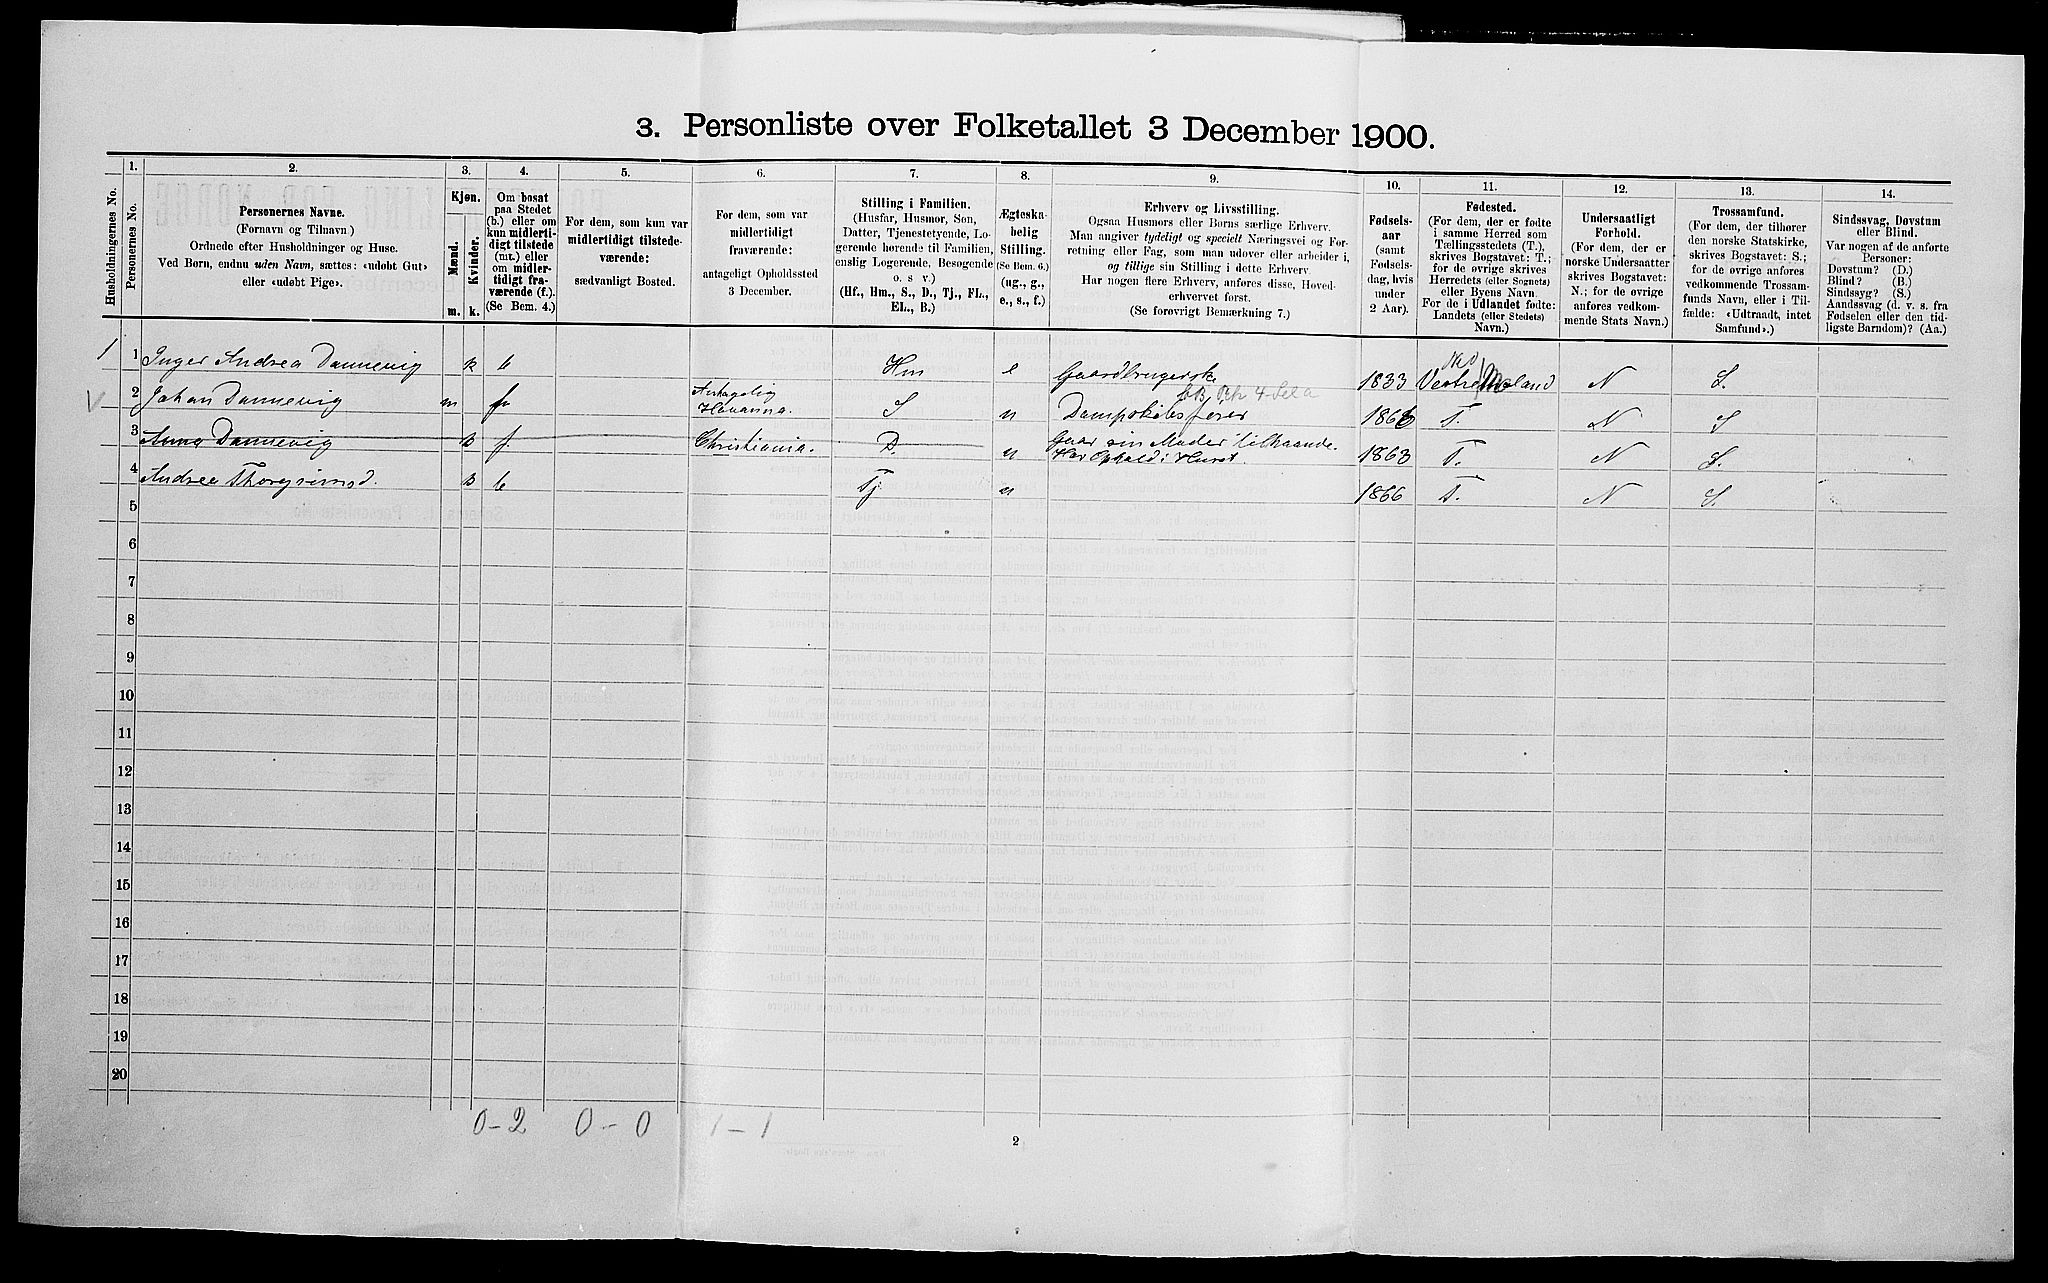 3. Personliste over Folketallet 3 December 1900.
1. 2. 3. 4. 5. 6. 7. 8. 9. 10. 11. 12. 13. 14.
Husholdningernes No.
Personernes No.
Personernes Navne.
(Fornavn og Tilnavn.)
Ordnede efter Husholdninger og Huse.
Ved Børn, endnu uden Navn, sættes: «udøbt Gut»
eller «udøbt Pige».
Kjøn.
Mænd.
Kvinder.
m. k.
Om bosat
paa Stedet
(b.) eller om
kun midlerti-
digt tilstede
(mt.) eller
om midler-
tidigt fra-
værende (f.).
(Se Bem. 4.)
For dem, som kun var
midlertidigt tilstede-
værende:
sædvanligt Bosted.
For dem, som var
midlertidigt
fraværende:
antageligt Opholdssted
3 December.
Stilling i Familien.
(Husfar, Husmor, Søn,
Datter, Tjenestetyende, Lo-
gerende hørende til Familien,
enslig Logerende, Besøgende
o. s. v.)
(Hf., Hm., S., D., Tj., FL.,
EL., B.)
Ægteska-
belig
Stilling.
(Se Bem. 6.)
(ug., g.,
e., s., f.)
Erhverv og Livsstilling.
Ogsaa Husmors eller Børns særlige Erhverv.
Man angiver tydeligt og specielt Næringsvei og For-
retning eller Fag, som man udøver eller arbeider i,
og tillige sin Stilling i dette Erhverv.
Har nogen flere Erhverv, anføres disse, Hoved-
erhvervet først.
(Se forøvrigt Bemærkning 7.)
Fødsels-
aar
(samt
Fødsels-
dag, hvis
under
2 Aar).
Fødested.
(For dem, der er fødte
i samme Herred som
Tællingsstedets (T.),
skrives Bogstavet: T.;
for de øvrige skrives
Herredets (eller Sognets)
eller Byens Navn.
For de i Udlandet fødte:
Landets (eller Stedets)
Navn.)
Undersaatligt
Forhold.
(For dem, der er
norske Undersaatter
skrives Bogstavet:
N.; for de øvrige
anføres vedkom-
mende Stats Navn.)
Trossamfund.
(For dem, der tilhører
den norske Statskirke,
skrives Bogstavet: S.;
for de øvrige anføres
vedkommende Trossam-
funds Navn, eller i Til-
fælde: «Udtraadt, intet
Samfund».)
Sindssvag, Døvstum
eller Blind.
Var nogen af de anførte
Personer:
Døvstum? (D.)
Blind? (B.)
Sindssyg? (S.)
Aandssvag (d. v. s. fra
Fødselen eller den tid-
ligste Barndom)? (Aa.)
1 1 Inger Andrea Dannevig k b Hm e Gaardbrugerske 1833 Vestre Moland N S.
2 Johan Dannevig m f Antagelig Havanna. S u Dampskibsfører 1866 T. N S
3 Anna Dannevig k f. Christiania. D. u Gaar sin Moder tilhaande. Har Ophold i Huset. 1863 T. N S.
4 Andrea Thorgrimsd. k b Tj u 1866 T. N S.
5
6
7
8
9
10
11
12
13
14
15
16
17
18
19
20
0-2 0-0 1-1
2
2